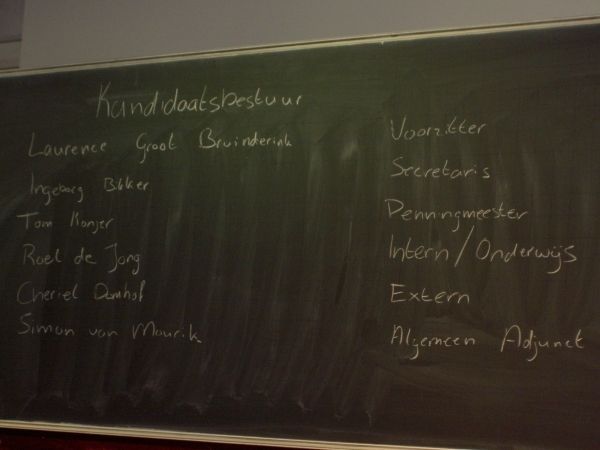 Kandidaatsbestuur
Laurence Groot Bruinderink Voorzitter
Ingeborg Bikker Secretaris
Tom Konjer Penningmeester
Roel de Jong Intern/Onderwijs
Cheriel Damhof Extern
Simon van Mourik Algemeen Adjunct